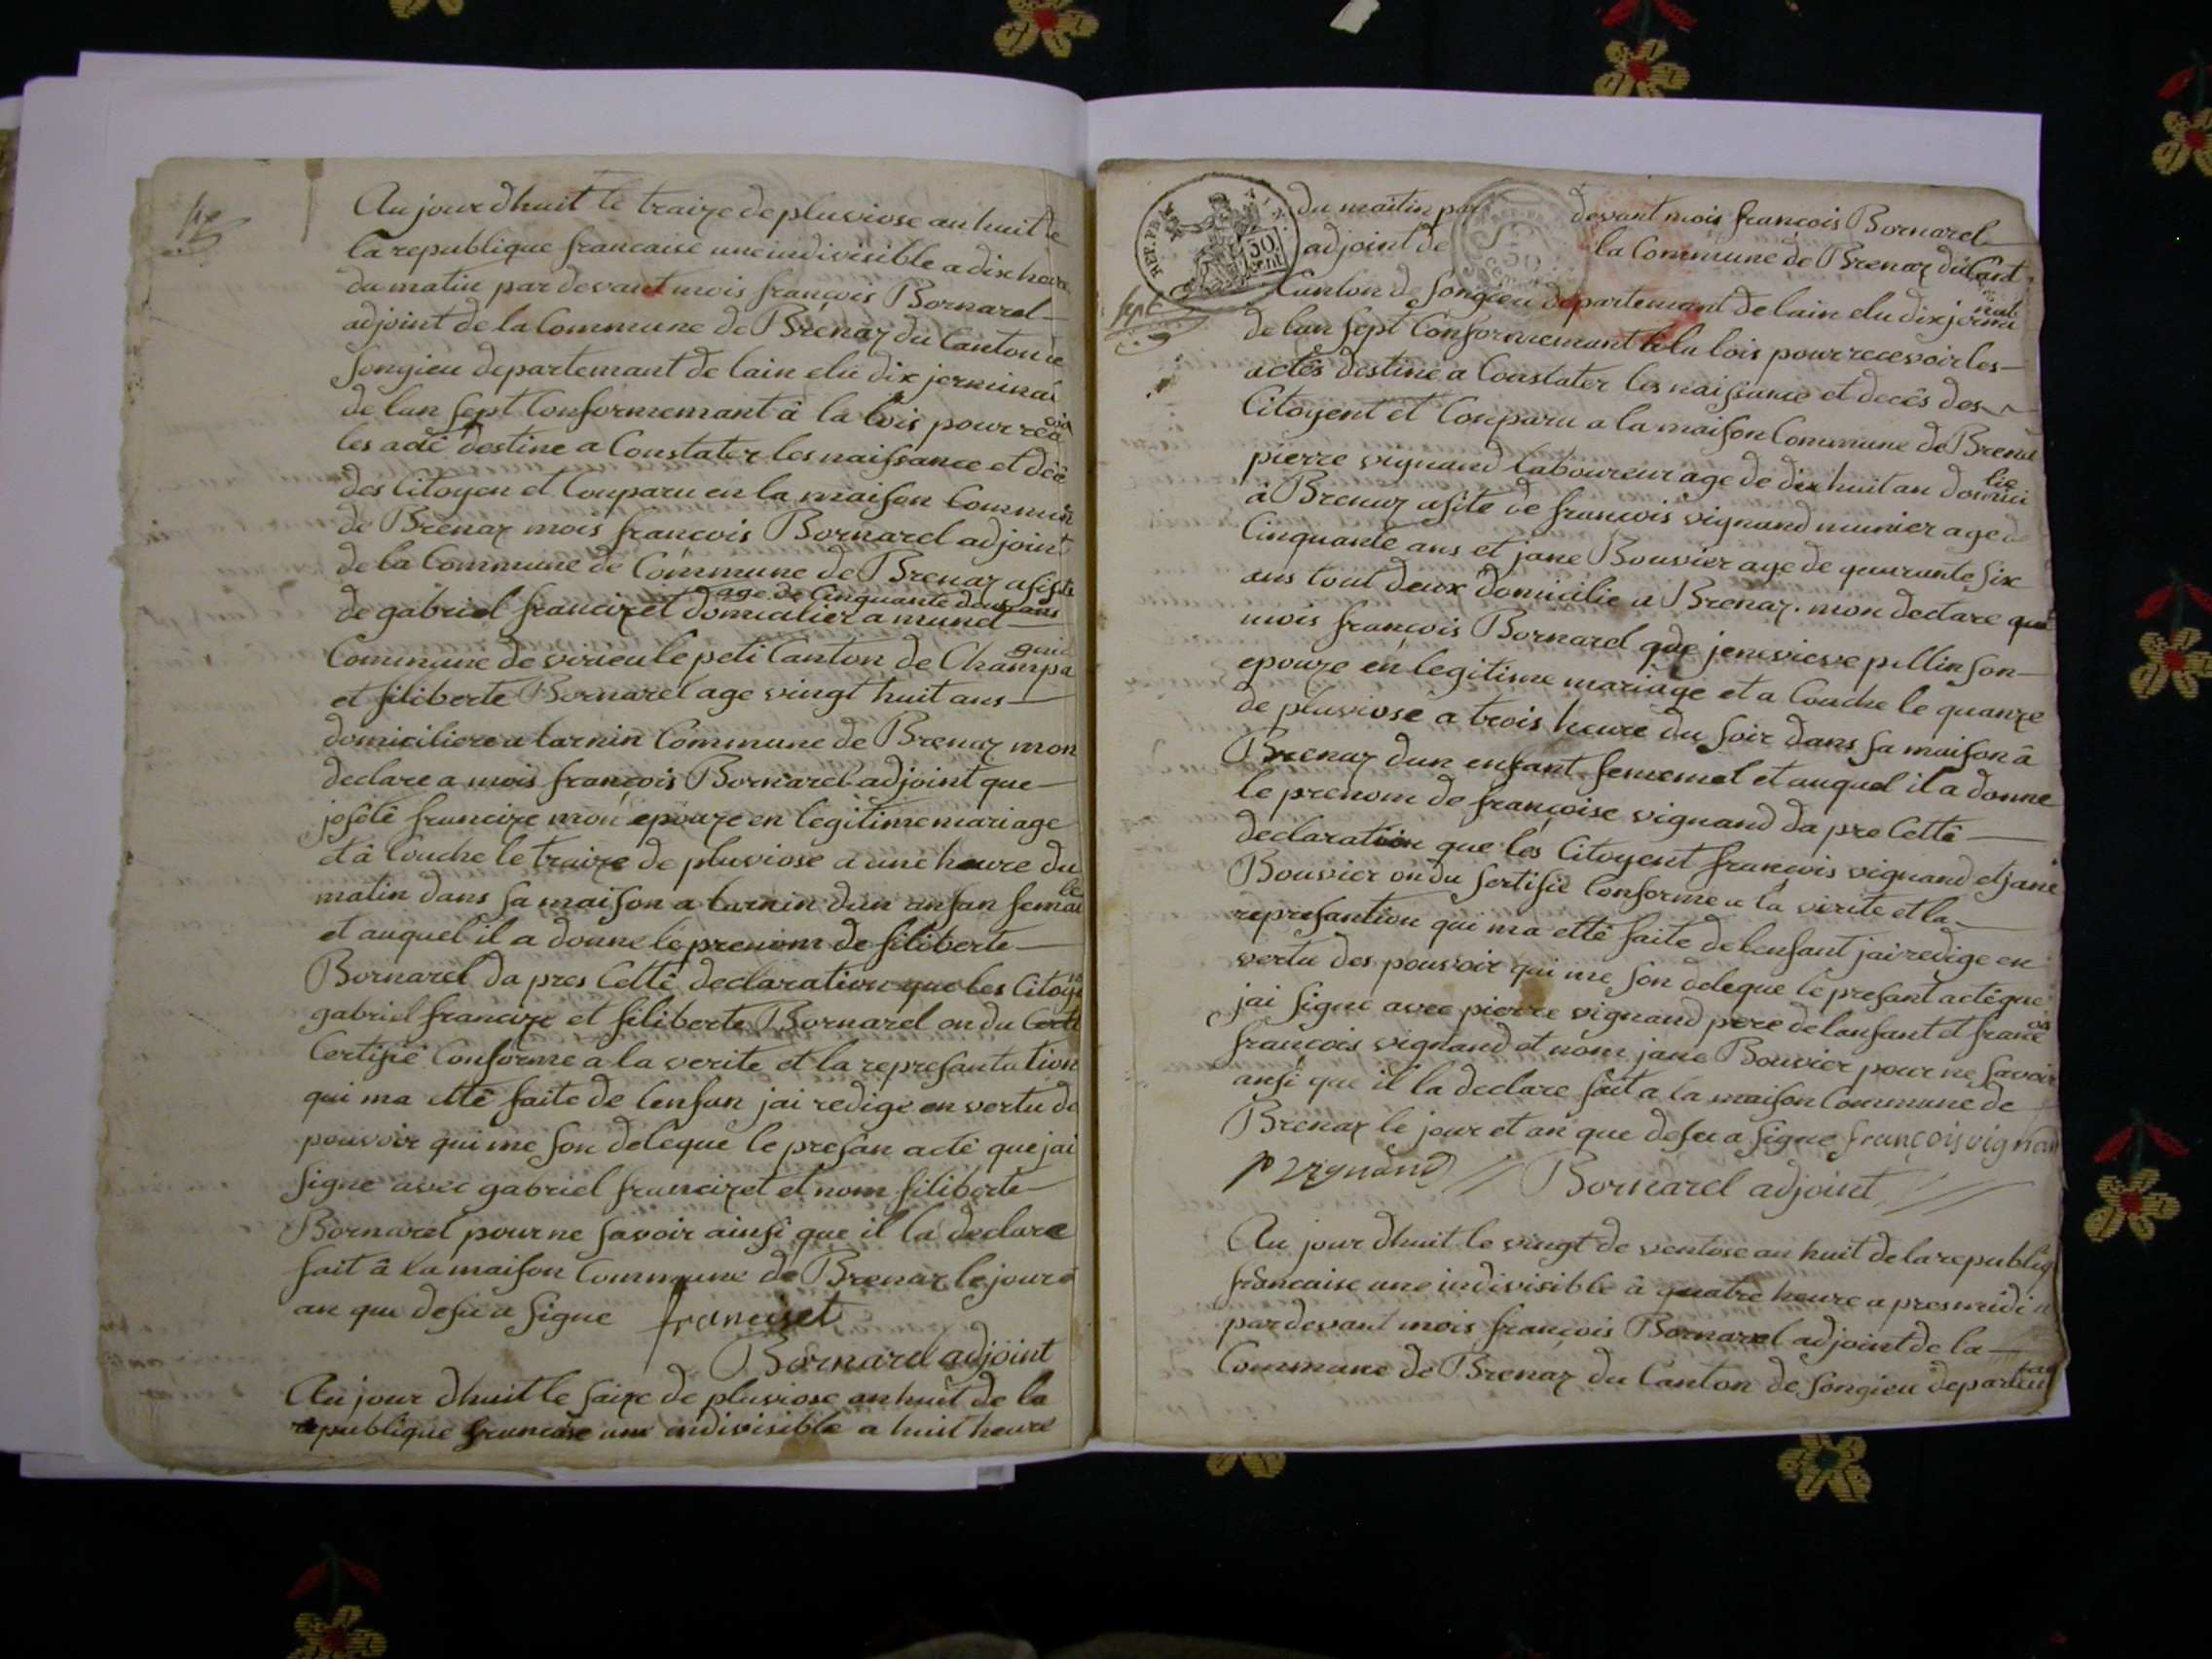 Au jour dhuit le traize de pluviose an huit de
la republique francaise une indivisible a dix heure
du matin par devant mois françois Bornarel
adjoint de la Commune de Brénaz du Canton de
Songieu departemant de lain elu dix jerminal
de lan sept Conformemant â la lois pour
les acte destine a Constater les naissance et décê
des Citoyen et Conparu en la maison Commune
de Brénaz mois francois Bornarel adjoint
de la Commune de Commune de Brenaz asiste
age de Cinquante deux ans
de gabriel francizet domicilier a munet
Commune de virieu le peti Canton de Champagnie
et filiberte Bornarel age vingt huit ans
domiciliere a tarnin Commune de Brenaz mon
declare a mois françois Bornarel adjoint que
joséte francize mon epouze en legitime mariage
et â Couche le traize de pluviose a une heure du
matin dans sa maison a tarnin dun anfan femal
et auquel il a donne le prenom de filiberte
Bornarel da pres Cette declaration que les Citoye
gabriel francize et filiberte Bornarel on du
Certifié Conforme a la verite et la represantation
qui ma etté faite de lenfan jai redige en vertu de
pouvoir qui me son deleque le presan acte que jai
signe avec gabriel francizet et nom filiberte
Bornarel pour ne savoir ainsi que il la declare
fait â la maison Commune de Brenaz le jour e
an que desu a signe franciset
Bornarel adjoint
Au jour dhuit le saize de pluviose an huit de la
republique francaise une indivisible a huit heure
REP. FRA.
50 cent
du maitin par devant mois françois Bornarel
adjoint de la Commune de Brenaz du Cant
Canton de songieu departemant de lain elu dix jerminal
sept
de lan sept Conformemant a la lois pour recevoir les
actes destine a Constater les naissance et decês des
Citoyent et Conparu a la maison Commune de Brena
pierre vignand laboureur age de dix huit an domicilie
â Brenaz asite de francois vignand munier age de
Cinquante ans et jane Bouvier age de quarante six
ans tout deux domicilie a Brenaz. mon declare que
mois françois Bornarel que jenevieve pillin son
epouze en legitime mariage et a Couche le quanze
de pluviose a trois heure du soir dans sa maison â
Brenaz dun enfant femenel et auquel il a donne
le prenom de françoise vignand da pre Cette
declaration que les Citoyent françois vignand et jane
Bouvier on du sertifié Conforme a la virite et la
represantion qui ma etté faite de lenfant jai redige en
vertu des pouvoir qui me son deleque le presant acte que
jai signe avec pierre vignand pere de lanfant et
françois vignand et nom jane Bouvier pour ne savoir
ansi que il la declare fait a la maison Commune de
Brenaz le jour et an que desu a signe françois vignan
p vignand // Bornarel adjoint //
Au jour dhuit le vingt de ventose an huit de la republiq
francaise une indivisible â quatre heure a pres midi a
par devant mois françois Bornarel adjoint de la
Commune de Brenaz du Canton de songieu